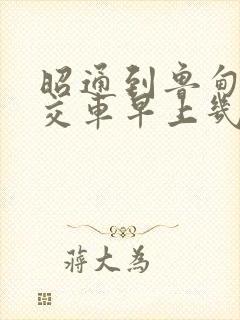 昭通到鲁甸
交车早上几
蒋大为